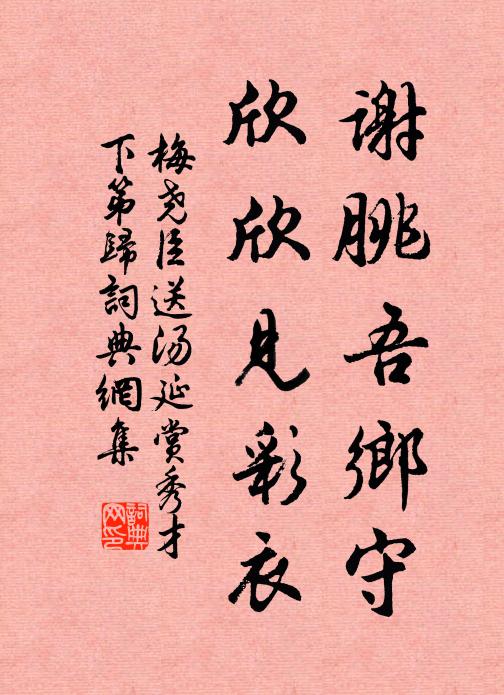 谢朓吾鄉守
欣欣見彩衣
梅尧臣送汤延赏秀才
下第歸詞典網集
詞典
网印